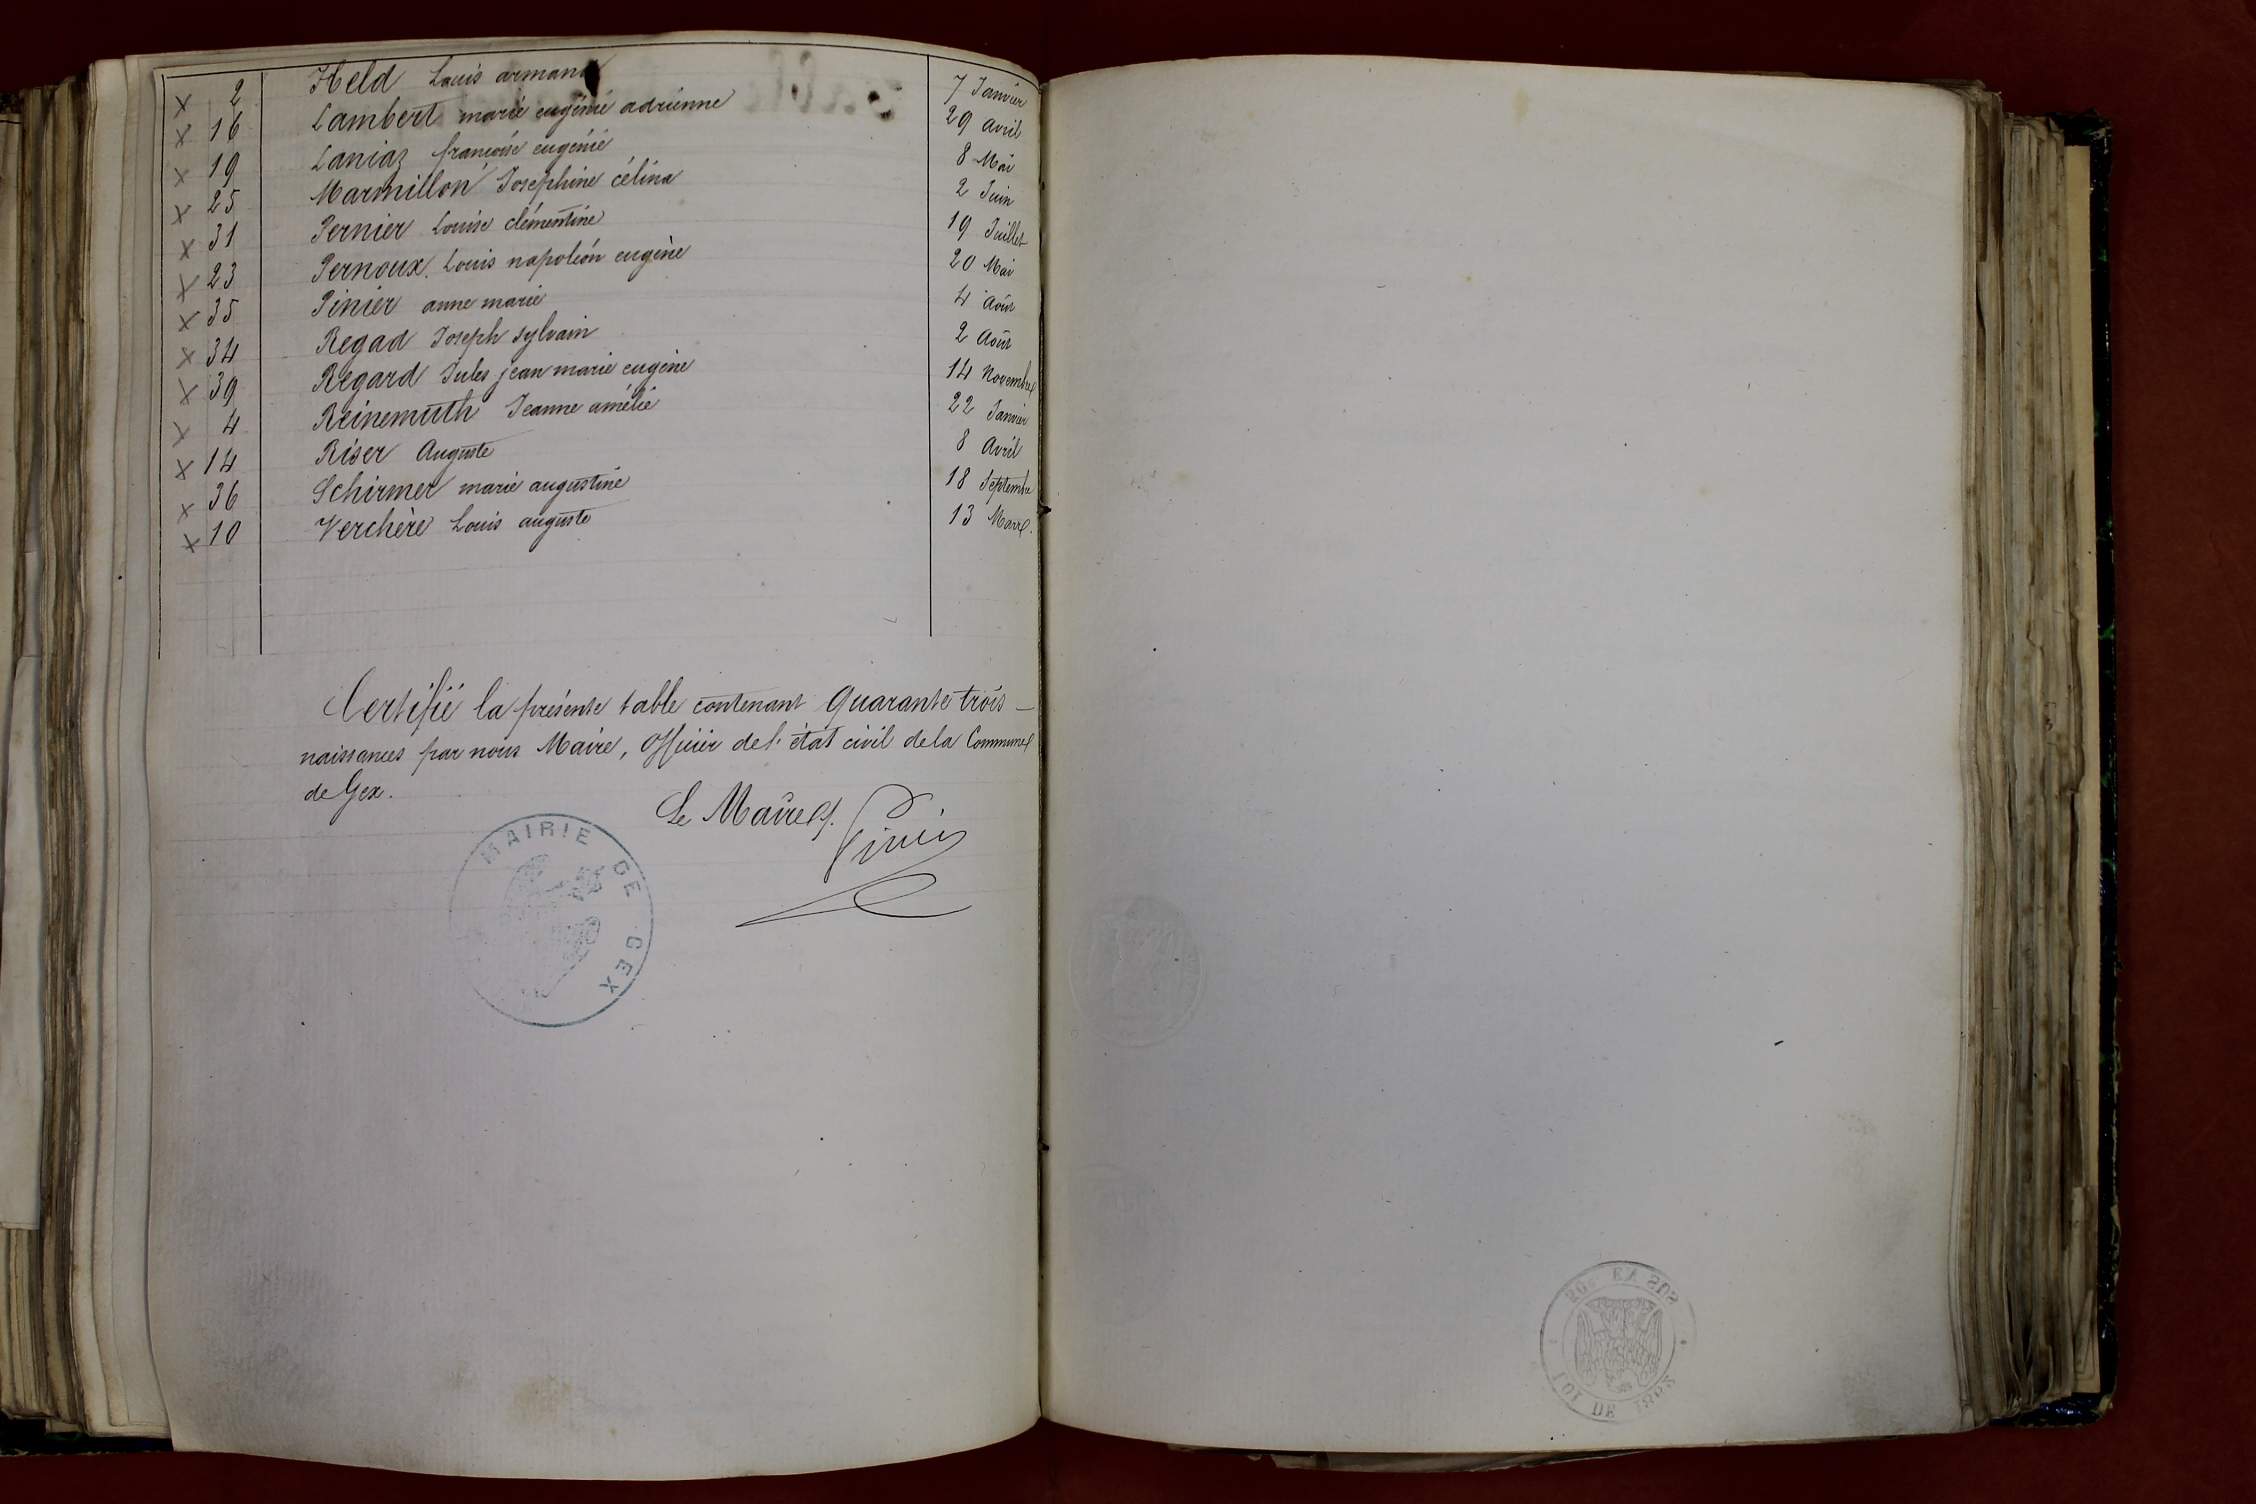 × 2 Held Louis armand 7 Janvier
× 16 Lambert marie eugénie adrienne 29 avril
× 19 Laniaz françoise eugénie 8 Mai
× 25 Marmillon Josephine célina 2 Juin
× 31 Pernier Louise clémentine 19 Juillet
× 23 Pernoux Louis napoléon eugène 20 Mai
× 35 Pinier anne marie 4 Août
× 34 Regad Joseph sylvain 2 Août
× 39 Regard Jules jean marie eugène 14 Novembre
× 4 Reinemuth Jeanne amélie 22 Janvier
× 14 Riser Auguste 8 Avril
× 36 Schirmer marie augustine 18 Septembre
× 10 Verchère Louis auguste 13 Mars.
Certifié la présente table contenant Quarante trois
naissances par nous Maire, Officier de l'état civil de la Commune
de Gex.
Le Maire
MAIRIE DE GEX
LOI DE